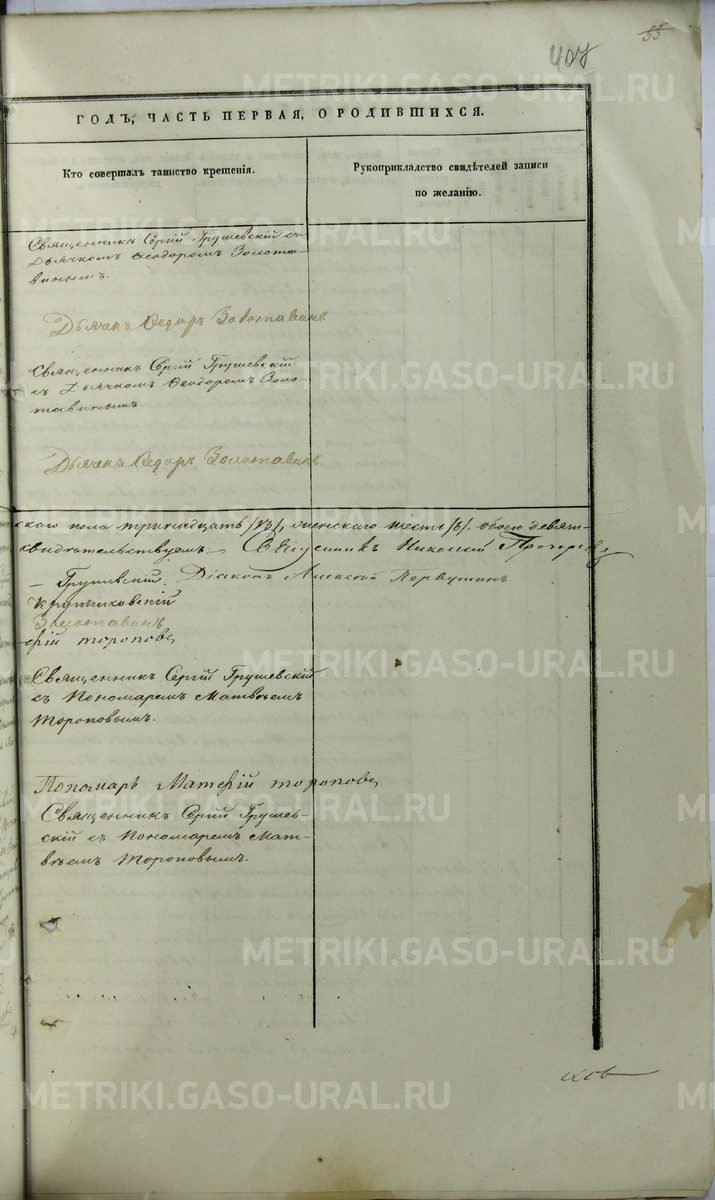 55
407
ГОДЪ, ЧАСТЬ ПЕРВАЯ, О РОДИВШИХСЯ.
Кто совершалъ таинство крещенія.
Рукоприкладство свидѣтелей записи
по желанію.
Священникъ Сергій Грушевскій съ
Дьячкомъ Ѳеодоромъ Золота-
винымъ.
Дьячекъ Ѳедоръ Золотавинъ
Священникъ Сергій Грушевскій
съ Дьячкомъ Ѳеодоромъ Золо-
тавинымъ.
Дьячекъ Ѳедоръ Золотавинъ
скаго пола тринадцать /13/, женскаго шесть /6/. обоего девят-
свидѣтельствуемъ. Священникъ Николай
Грушевскій. Діаконъ Алексѣй Первушинъ
Золотавинъ
ѳій Тороповъ
Священникъ Сергій Грушевскій
съ Пономаремъ Матвѣемъ
Тороповымъ.
Пономарь Матѳій Тороповъ
Священникъ Сергій Грушев-
скій съ Пономаремъ Мат-
вѣемъ Тороповымъ.
METRIKI.GASO-URAL.RU